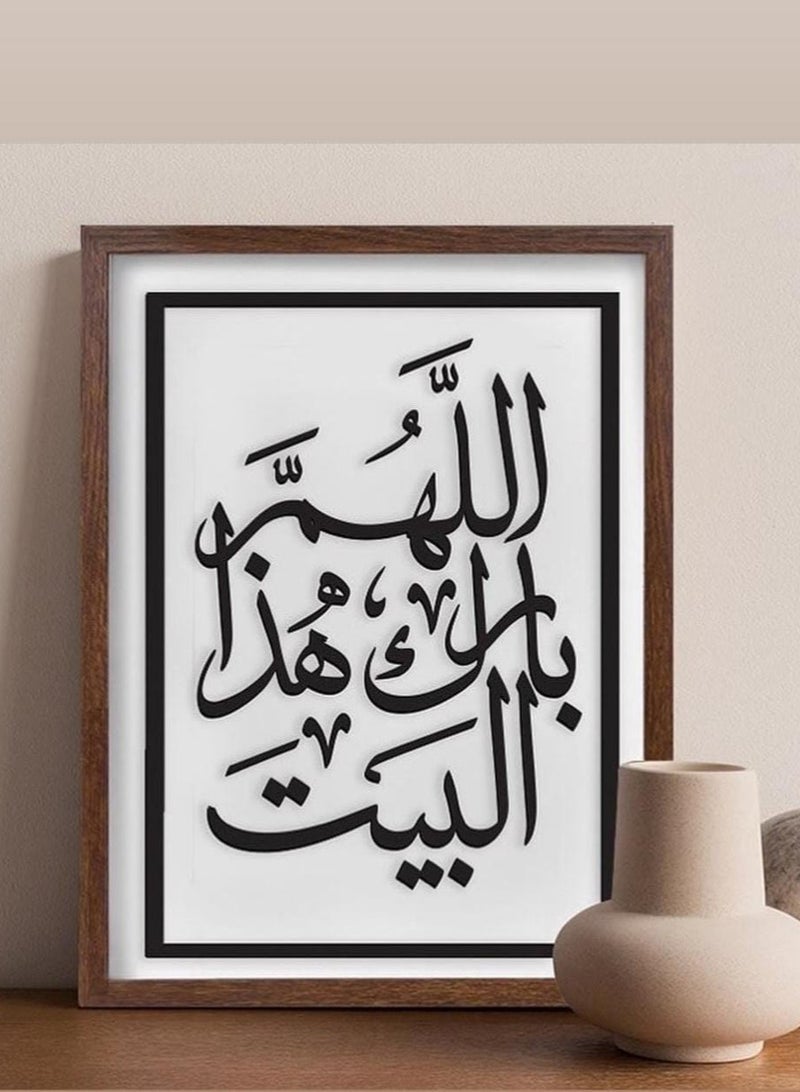 اللَّهُمَّ
بارك هُذا
البيتَ